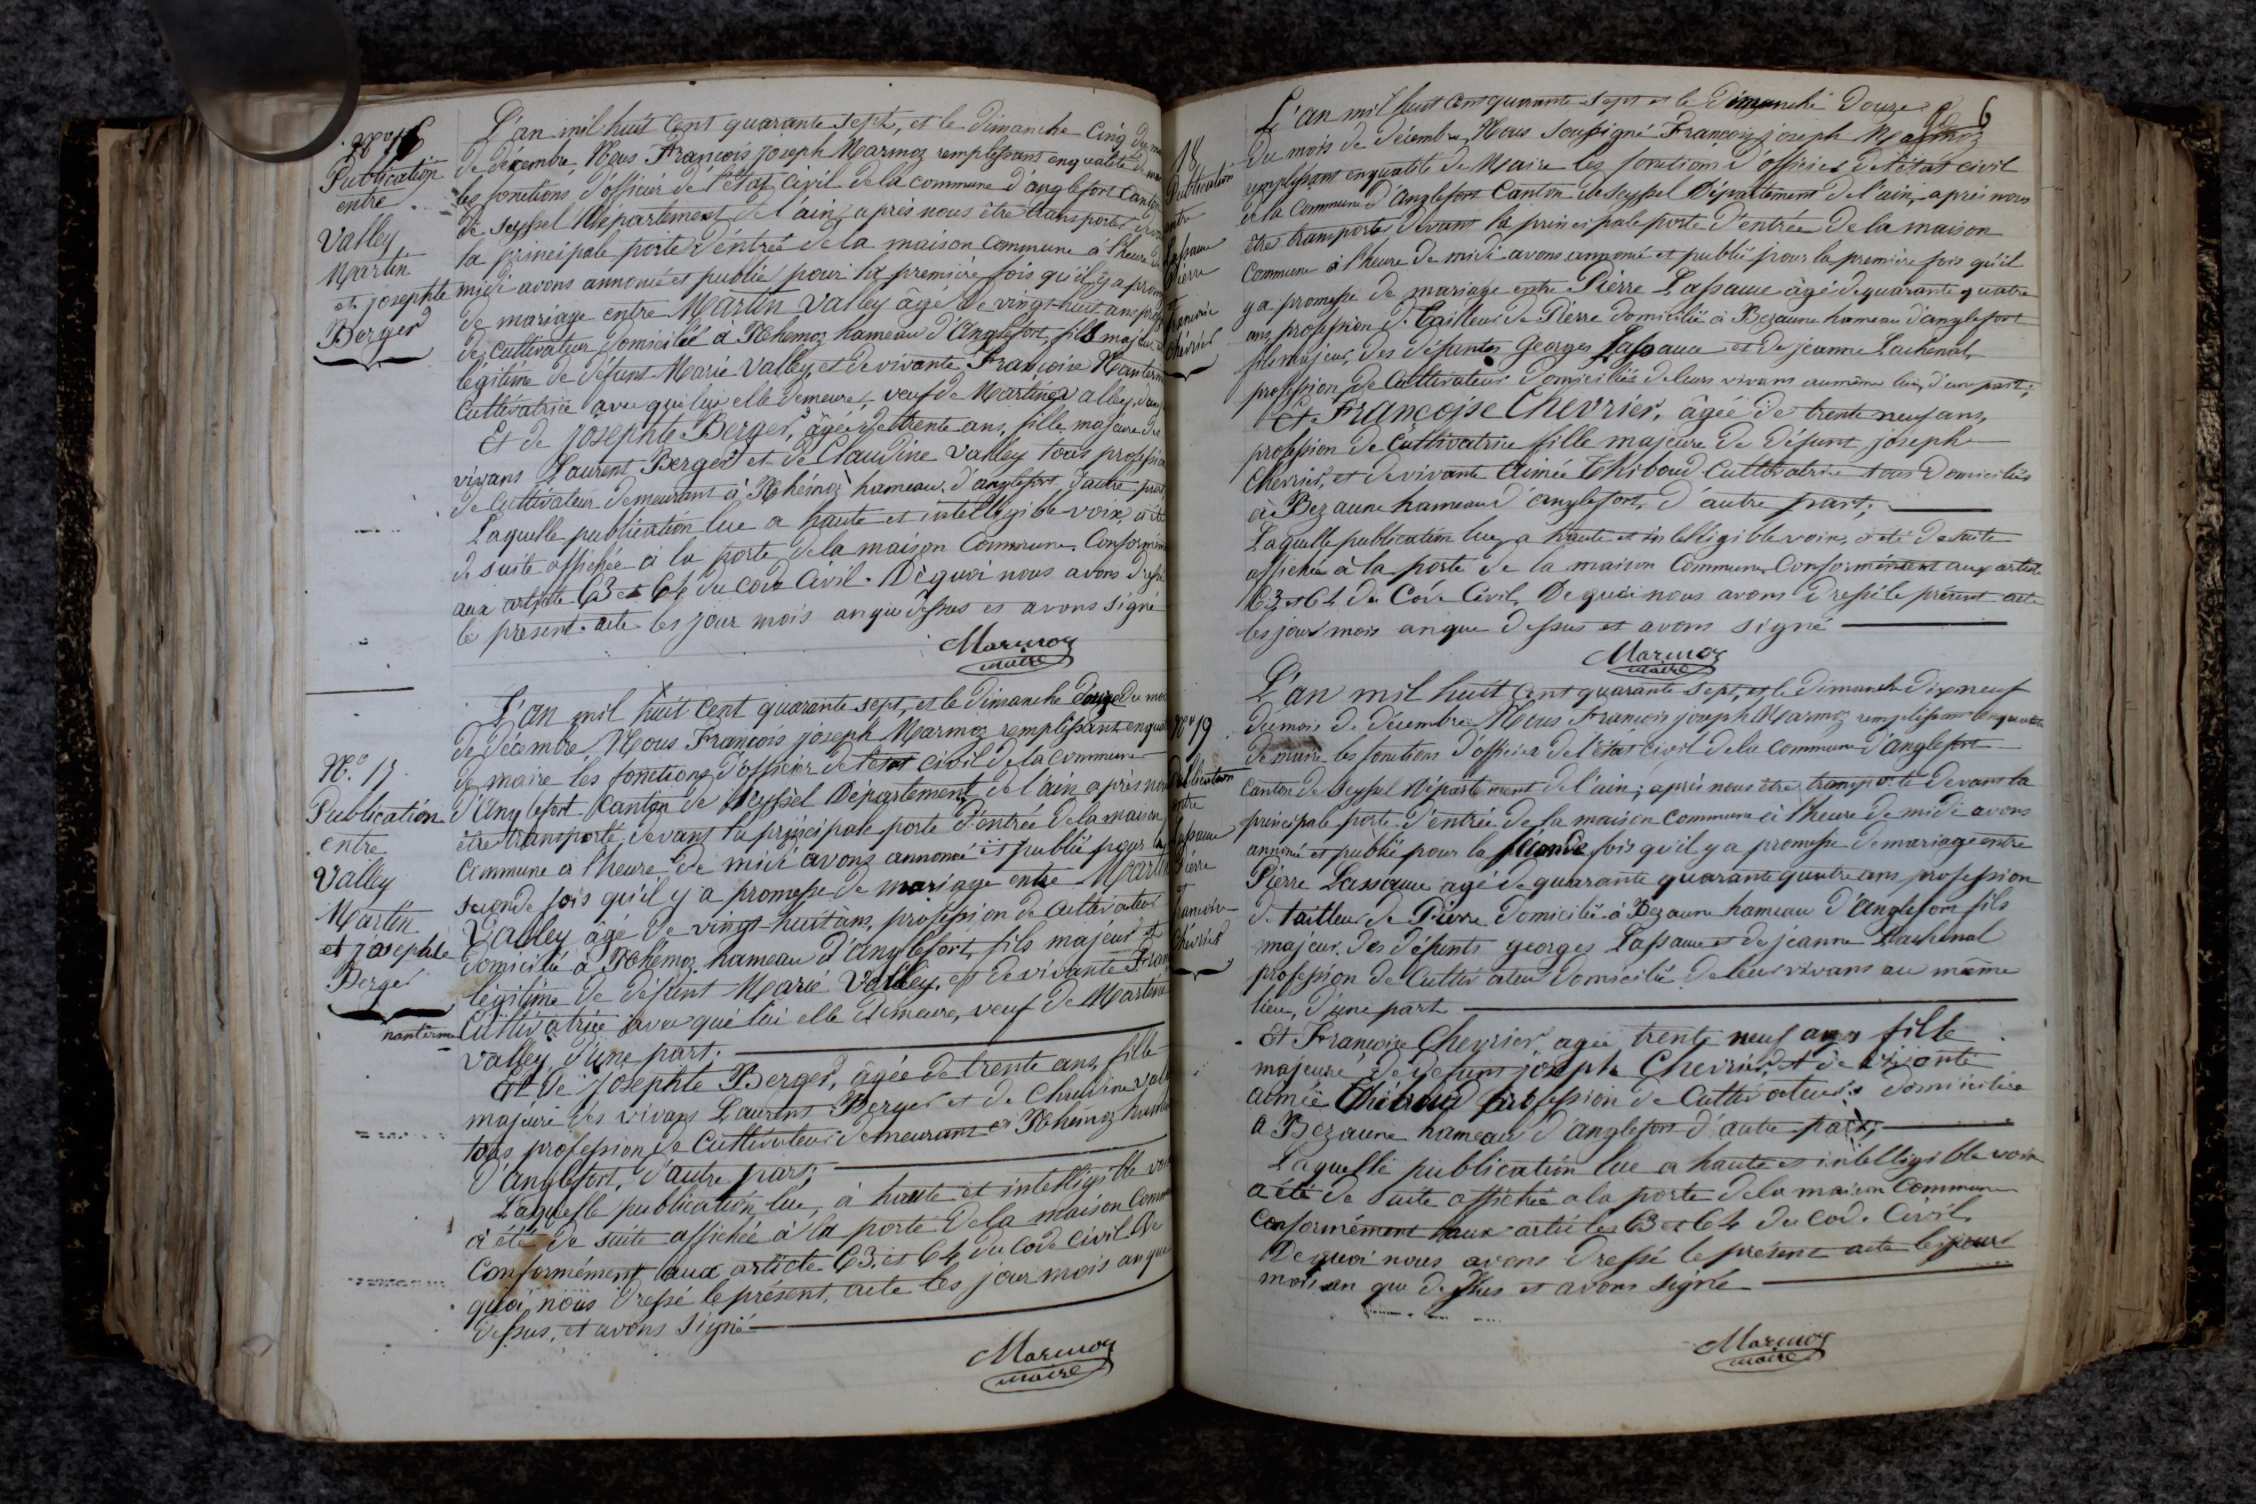 No 16
Publication
entre
Valley
Martin
et josephte
Berger
L'an mil huit cent quarante sept, et le dimanche cinq du
de décembre, Nous François joseph Marmoz remplissant enqualité de
les fonctions d'officier de l'état civil de la commune d'anglefort canton
de Seyssel Département de l'ain, après nous être transporté
la principale porte d'entrée de la maison commune à l'heure de
midi avons annoncé et publié pour la première fois qu'il y a prom
de mariage entre Martin Valley âgé de vingt-huit ans prof
de cultivateur domicilié à Rhemoz hameau d'Anglefort, fils majeur
légitime de défunt Marie Valley, et de vivante Françoise Nanterme
Cultivatrice avec qui lui elle demeure, veuf de Martine Valley
Et de josephte Berger, âgée de trente ans, fille majeure de
vivans Laurent Berger et de Claudine Valley tous profession
de Cultivateur demeurant à Rhémoz hameau d'anglefort, d'autre part
Laquelle publication lue a haute et intelligible voix, a été
de suite affichée à la porte de la maison Commune. Conformém
aux article 63 et 64 du code Civil. De quoi nous avons dressé
le présent acte les jour mois an que dessus et avons signé
Marmoz
maire
N.o 17
Publication
entre
Valley
Martin
et josephte
Berger
nanterme
L'an mil huit cent quarante sept, et le dimanche douze du mois
de décembre, Nous François joseph Marmoz remplissant enqualité
de maire les fonctions d'officier de l'état civil de la commune
d'Anglefort Canton de Seyssel Département de l'ain après nous
être transporté devant la principale porte d'entrée de la maison
Commune à l'heure de midi avons annoncé et publié pour la
seconde fois qu'il y a promesse de mariage entre Martin
Valley âgé de vingt-huit ans, profession de cultivateur
domicilié à Rhemoz hameau d'Anglefort, fils majeur et
légitime de défunt Marie Valley, et de vivante Fran
Cultivatrice avec qué lui elle demeure, veuf de Martine
Valley d'une part.
Et de josephte Berger, âgée de trente ans, fille
majeure des vivans Laurent Berger et de Claudine Vall
tous profession de Cultivateur demeurant à Rhémoz hameau
d'Anglefort, d'autre part;
Laquelle publication lue, à haute et intelligible voix
à été de suite affichée à la porte de la maison Comm
Conformément aux article 63 et 64 du code civil De
quoi nous dressé le présent, acte les jour mois an que
dessus, et avons signé
Marmoz
maire
6
18
Publication
entre
Lassaue
Pierre
et
Françoise
Chevrier
L'an mil huit cent quarante sept et le dimanche douze
du mois de décembre, Nous soussigné François joseph Marmoz
remplissant enqualité de Maire les fonctions d'officier de l'état civil
de la commune d'Anglefort Canton de Seyssel Département de l'ain, après nous
être transporté devant la principale porte d'entrée de la maison
Commune à l'heure de midi avons annoncé et publié pour la première fois qu'il
y a promesse de mariage entre Pierre Lassaue âgé de quarante quatre
ans, profession de tailleur de Pierre domicilié à Bezaune hameau d'anglefort
fils majeur, des défunts Georges Lassaue et de jeanne Lachenal,
profession de Cultivateur domiciliés de leurs vivans au même lieu, d'une part;
Et Françoise Chevrier, âgée de trente neuf ans,
profession de Cultivatrice fille majeure de défunt joseph
Chevrier, et de vivante Aimée Thiboud cultivatrice tous domiciliés
à Bezaune hameau d'anglefort, d'autre part;
Laquelle publication lue, a haute et intelligible voix, a été de suite
affichée à la porte de la maison Commune Conformément aux article
63 et 64 du Code Civil, De quoi nous avons dressé le présent acte
les jour mois an que dessus et avons signé
Marmoz
maire
No 19
Publication
entre
Lassaue
Pierre
et
françoise
Chevrier
L'an mil huit cent quarante sept, et le dimanche dix neuf
du mois de décembre Nous François joseph Marmoz remplissant enqualité
de maire les fonctions d'officier de l'état civil de la commune d'anglefort
Canton de Seyssel Département de l'ain; après nous être transporté devant la
principale porte d'entrée de la maison commune à l'heure de midi avons
annoncé et publié pour la seconde fois qu'il y a promesse de mariage entre
Pierre Lassaue âgé de quarante quarante quatre ans profession
de tailleur de Pierre domicilié à Bezaune hameau d'Anglefort fils
majeur des défunts georges Lassaue et de jeanne Lachenal
profession de Cultivateur domicilié de leur vivans au même
lieu, d'une part
Et Françoise Chevrier agée trente neuf ans fille
majeure de defunt joseph Chevrier et de vivante
aimée Thiboud profession de Cultivateurs domiciliée
à Bezaune hameau d'anglefort d'autre part;
Laquelle publication lue a haute et intelligible voix
a été de suite affichée a la porte de la maison Commune
conformément aux articles 63 et 64 du Code Civil
De quoi nous avons dressé le présent acte les jour
mois an que dessus et avons signé
Marmoz
maire